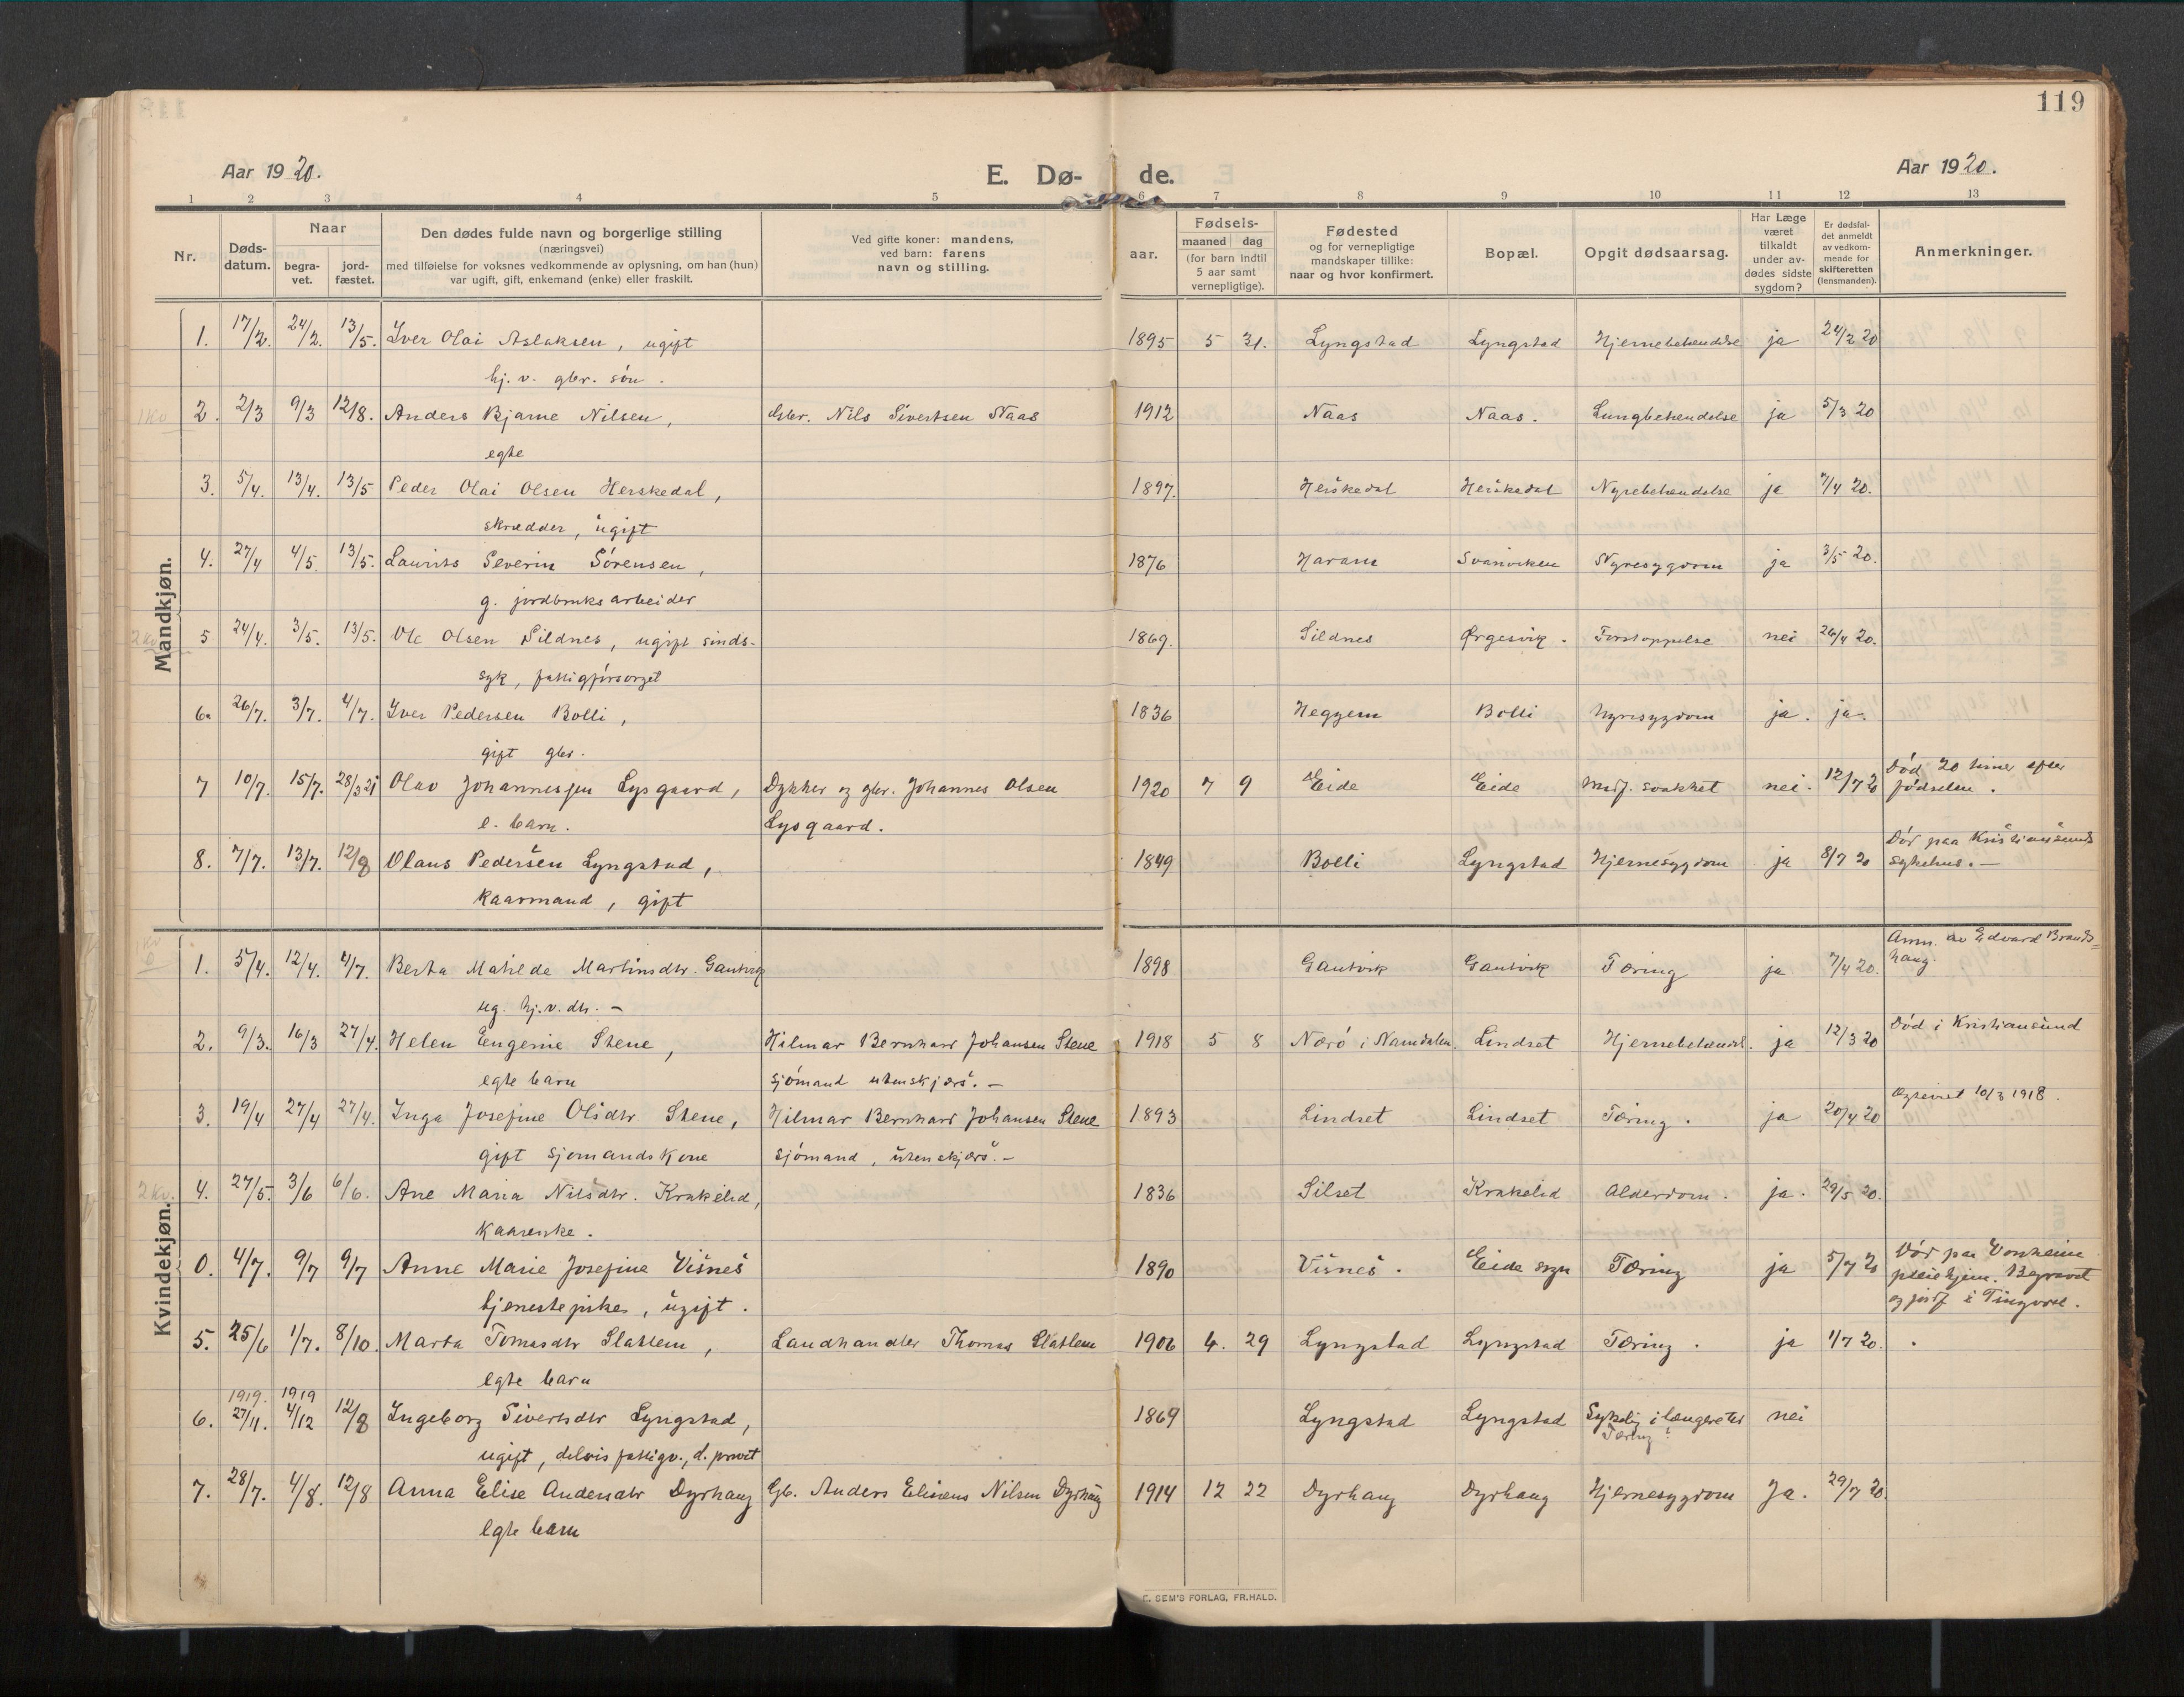 119
Aar 1920.
E. Dø-
de.
Aar 1920.
1 2 3 4 5 6 7 8 9 10 11 12 13
Nr.
Døds-
datum.
Naar
begra-
vet.
jord-
fæstet.
Den dødes fulde navn og borgerlige stilling
(næringsvei)
med tilføielse for voksnes vedkommende av oplysning, om han (hun)
var ugift, gift, enkemand (enke) eller fraskilt.
Ved gifte koner: mandens,
ved barn: farens
navn og stilling.
aar.
Fødsels-
maaned dag
(for barn indtil
5 aar samt
vernepligtige).
Fødested
og for vernepligtige
mandskaper tillike:
naar og hvor konfirmert.
Bopæl.
Opgit dødsaarsag.
Har Læge
været
tilkaldt
under av-
dødes sidste
sygdom?
Er dødsfal-
det anmeldt
av vedkom-
mende for
skifteretten
(lensmanden).
Anmerkninger.
Mandkjøn.
1. 17/2. 24/2. 13/5. Iver Olai Aslaksen, ugift 1895 5 31. Lyngstad Lyngstad Hjernebetændelse ja 24/2 20
hj. v. gbr. søn.
1 Kv 2. 2/3 9/3 12/8. Anders Bjarne Nilsen, Gbr. Nils Sivertsen Naas 1912 Naas Naas. Lungbetændelse ja 5/3 20
egte
3. 5/4. 13/4. 13/5 Peder Olai Olsen Herskedal, 1897. Herskedal Herskedal Nyrebetændelse ja 7/4 20.
skrædder, ugift
4. 27/4 4/5. 13/5. Laurits Severin Sørensen, 1876 Haram Svanviken Nyresygdom ja 3/5 20.
g. jordbruksarbeider
2 Kv. 5 24/4. 3/5. 13/5. Ole Olsen Sildnes, ugift sinds- 1869. Sildnes Ørgesvik. Forstoppelse nei 26/4 20.
syk, fattigforsorget
6. 26/7. 3/7. 4/7. Iver Pedersen Bolli, 1836 Heggem Bolli Nyresygdom ja. ja.
gift gbr.
7 10/7. 15/7. 28/3 21 Olav Johannessen Lysgaard, Dykker og gbr. Johannes Olsen 1920 7 9 Eide Eide Medf. svakhet nei. 12/7 20 Død 20 timer efter
e. barn. Lysgaard. fødselen.
8. 7/7. 13/7. 12/8 Olaus Pedersen Lyngstad, 1849 Bolli Lyngstad Hjernesygdom ja 8/7 20 Død paa Kristiansunds
kaarmand, gift sykehus. –
Kvindekjøn.
1. 5/4. 12/4. 4/7. Berta Matilde Martinsdtr. Gautvik 1898 Gautvik Gautvik Tæring ja 7/4 20. Anm. av Edvard Brands=
ug. hj. v. dtr. – haug.
2. 9/3. 16/3 27/4. Helen Eugenie Stene, Hilmar Bernhard Johansen Stene 1918 5 8 Nærø i Namdalen. Lindset Hjernebetændel. ja 12/3 20 Død i Kristiansund
egte barn sjømand utenskjærs. –
3. 19/4 27/4 27/4. Inga Josefine Olsdtr Stene, Hilmar Bernhard Johansen Stene 1893 Lindset Lindset Tæring. ja 20/4 20 10/3 1918.
gift sjømandskone sjømand, utenskjærs. –
2 Kv. 4. 27/5. 3/6 6/6. Ane Maria Nilsdtr. Krakelid, 1836 Silset Krakelid Alderdom. ja. 29/5 20.
Kaarenke.
0. 4/7. 9/7 9/7 Anne Marie Josefine Visnes 1890 Visnes. Eide sogn Tæring ja 5/7 20 Død paa Vonheim
tjenestepike, ugift. pleiehjem. Begravet
og jordf i Tingvoll.
5. 25/6 1/7. 8/10. Marta Tomasdtr Slatlem, Landhandler Thomas Slatlem 1906 4. 29 Lyngstad Lyngstad Tæring. ja 1/7 20.
egte barn
1919. 1919
6. 27/11. 4/12 12/8 Ingeborg Sivertsdtr Lyngstad, 1869 Lyngstad Lyngstad Sykelig i længere tid nei
ugift, delvis fattigv., d. privat Tæring?
7. 28/7. 4/8. 12/8 Anna Elise Andersdtr Dyrhaug Gb. Anders Elinens Nilsen Dyrhaug 1914 12 22 Dyrhaug Dyrhaug Hjernesygdom Ja. 29/7 20.
egte barn
E. SEM'S FORLAG, FR.HALD.